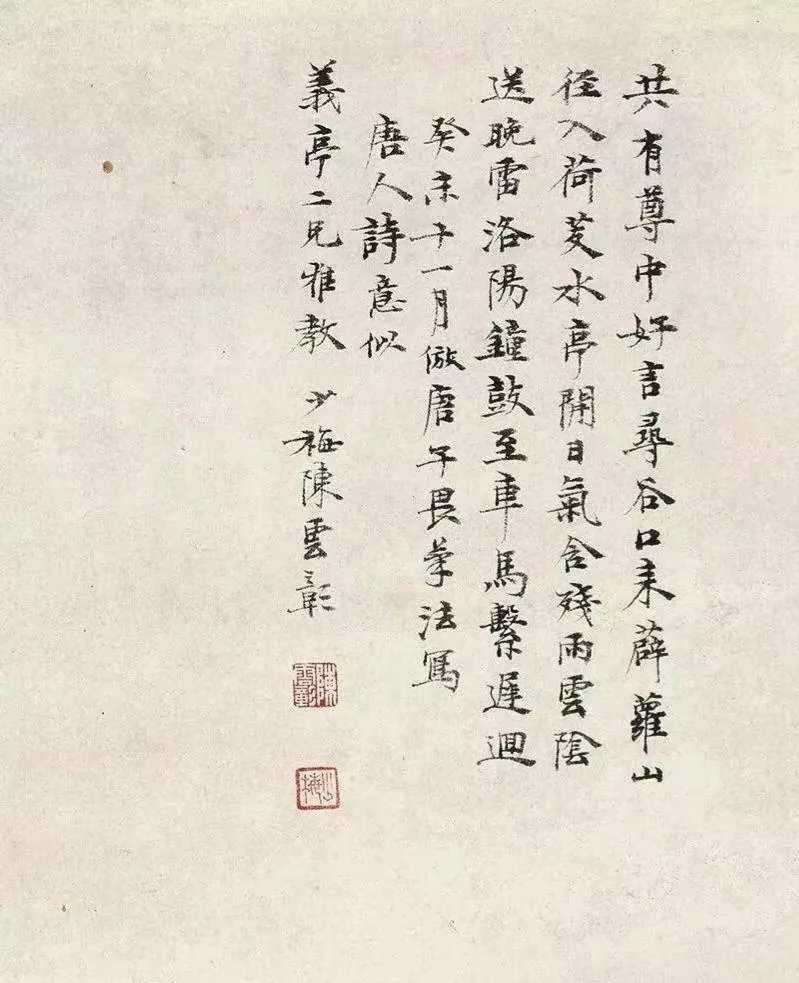 共有尊中好言尋谷口来薜蘿山
径入荷芰水亭開日氣含殘雨雲陰
送晚雷洛陽鐘鼓至車馬繫遲迴
癸未十一月倣唐子畏筆法寫
唐人詩意似
義亭二兄雅教 少梅陳雲彰
陳雲彰
少梅